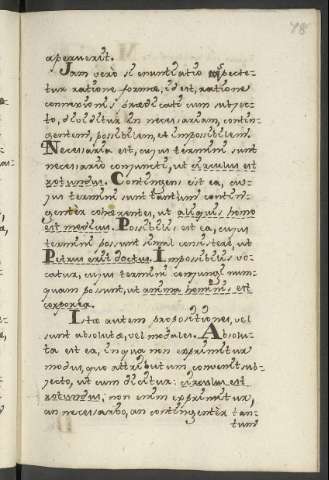 78
aperuerit.
Jam verò si enuntiatio spectetur
tur ratione formæ, id est, ratione
connexionis prædicati cum subjec-
to, dividitur in necessariam, contin-
gentem, possibilem, et impossibilem.
Necessaria est, cujus termini sunt
necessario conjuncti, ut circulus est
rotundus. Contingens est ea, cu-
jus termini sunt tantum contin-
genter cohærentes, ut aliquis homo
est medicus. Possibilis est ea, cujus
termini possunt simul consistere, ut
Petrus erit doctus. Impossibilis vo-
catur, cujus termini conjungi num-
quam possunt, ut anima hominis est
corporea.
Istæ autem propositiones, vel
sunt absolutæ, vel modales. Absolu-
ta est ea, in qua non exprimitur
modus, quo attributum convenit sub-
jecto, ut cum dicitur: circulus est
rotundus; non enim exprimitur,
an necessario, an contingenter tan-
tum